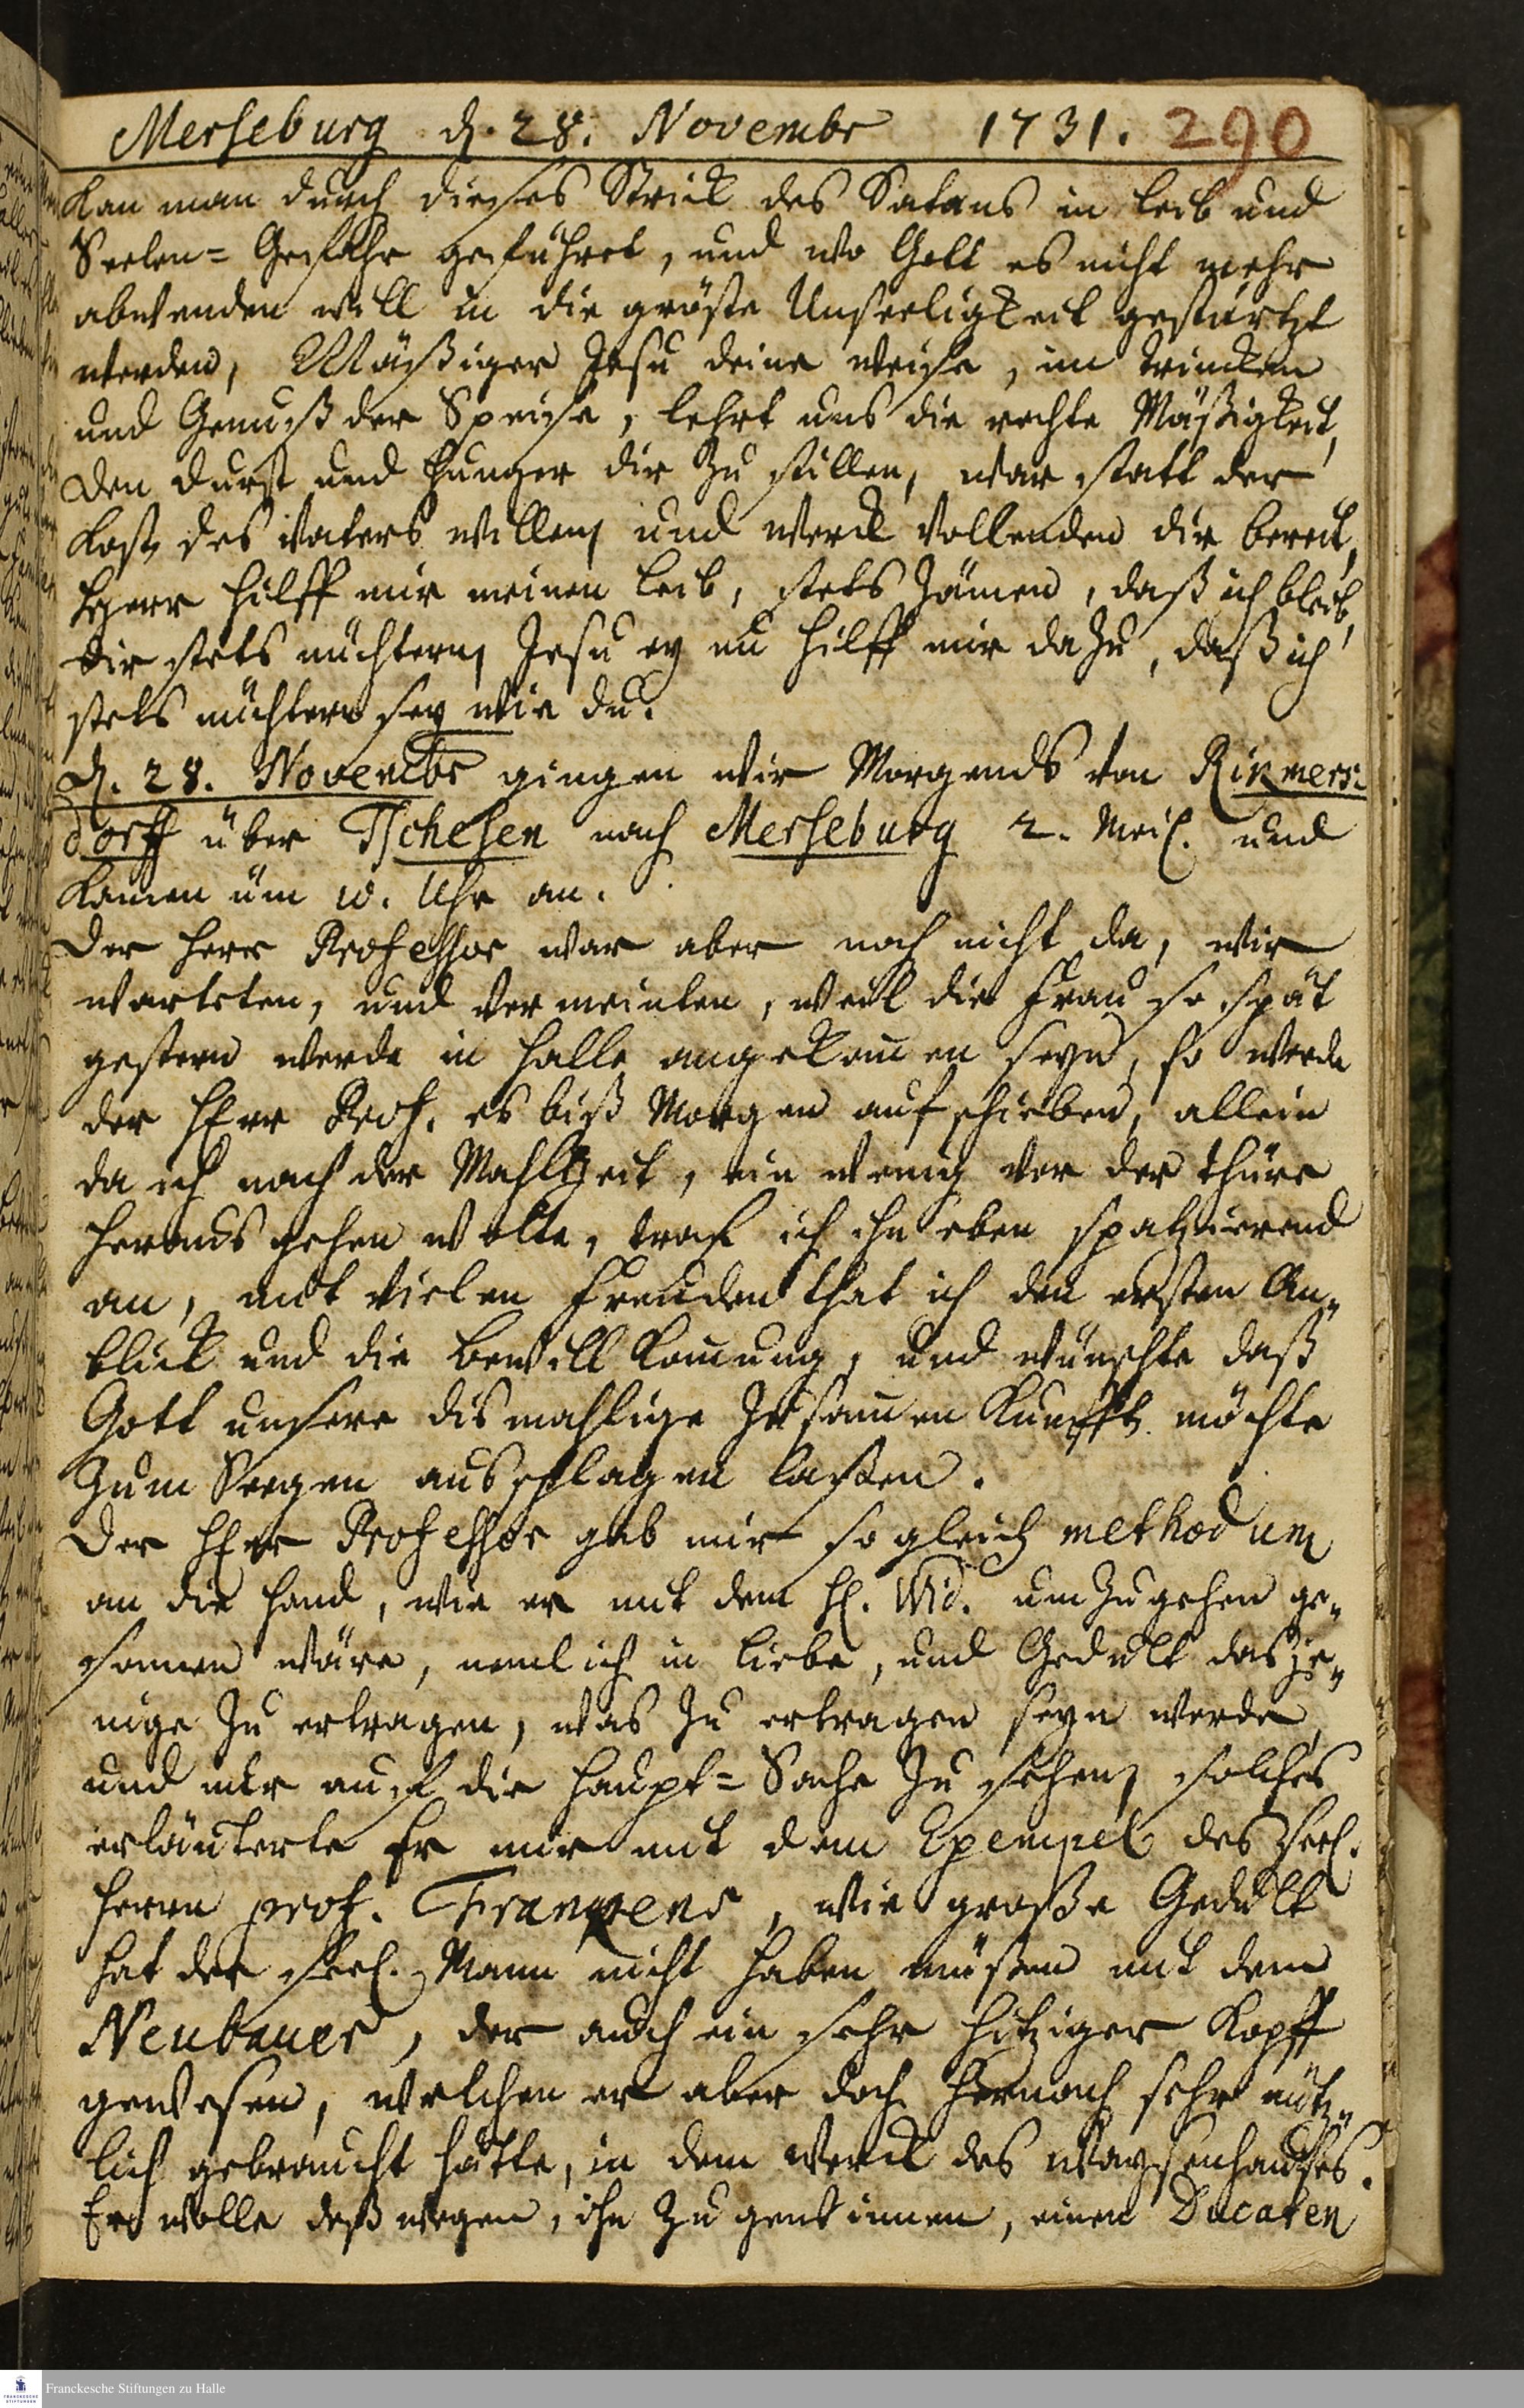 Merseburg d. 28. Novembr 1731. 290
kan man durch dieses Strick des Satans in Leib und
Seelen= Gefahr geführet, und wo Gott es nicht mehr
abwenden will in die gröste Unseeligkeit gestürtzt
werden, Mäßiger Jesu deine weise, im trincken
und Genuß der Speise, lehrt uns die rechte Mäßigkeit,
den durst und hunger dir zu stillen, war statt der
Kost, des Vaters willen und werck vollenden dir bereit,
HErr hilff mir meinen Leib, stets zämen, daß ich bleib,
dir stets nüchtern, Jesu ey nu hilff mir dazu, daß ich
stets nüchtern sey wie du.
d. 28. Novembr gingen wir Morgends von Rikmers=
dorff über Tschesen nach Merseburg 2. Meil. und
kamen üm 10. Uhr an.
Der Herr Professor war aber noch nicht da, wir
warteten, und vermeinten, weil die Frau so spät
gestern werde in Halle angekommen seyn, so werde
der HErr Prof. es biß Morgen aufschieben, allein
da ich nach der Mahltzeit, ein wenig vor der thüre
heraus gehen wolte, traf ich ihn eben spatzierend
an, mit vielen Freuden that ich den ersten An„
blick und die bewillkommung, und wünschte daß
Gott unsere dismahlige Zusammen Kunfft möchte
zum Seegen ausschlagen laßen.
Der HErr Professor gab mir sogleich methodum
an die Hand, wie er mit dem H. Wid. umzugehen ge„
sonnen wäre, nemlich in Liebe, und Gedult dasje„
nige zu ertragen, was zu ertragen seyn werde,
und nur auf die Haupt= Sache zu sehen, solches
erläuterte Er mir mit dem Exempel des Seel.
Herrn prof. Franckens, wie große Gedult
hat der Seel. Mann nicht haben müßen mit dem
Neubauer, der auch ein sehr hitziger Kopff
gewesen, welchen er aber doch hernach sehr nütz„
lich gebraucht hätte, in dem Werck des Waysenhauses.
Er wolle deßwegen, ihn zu gewinnen, einen Ducaten
Franckesche Stiftungen zu Halle